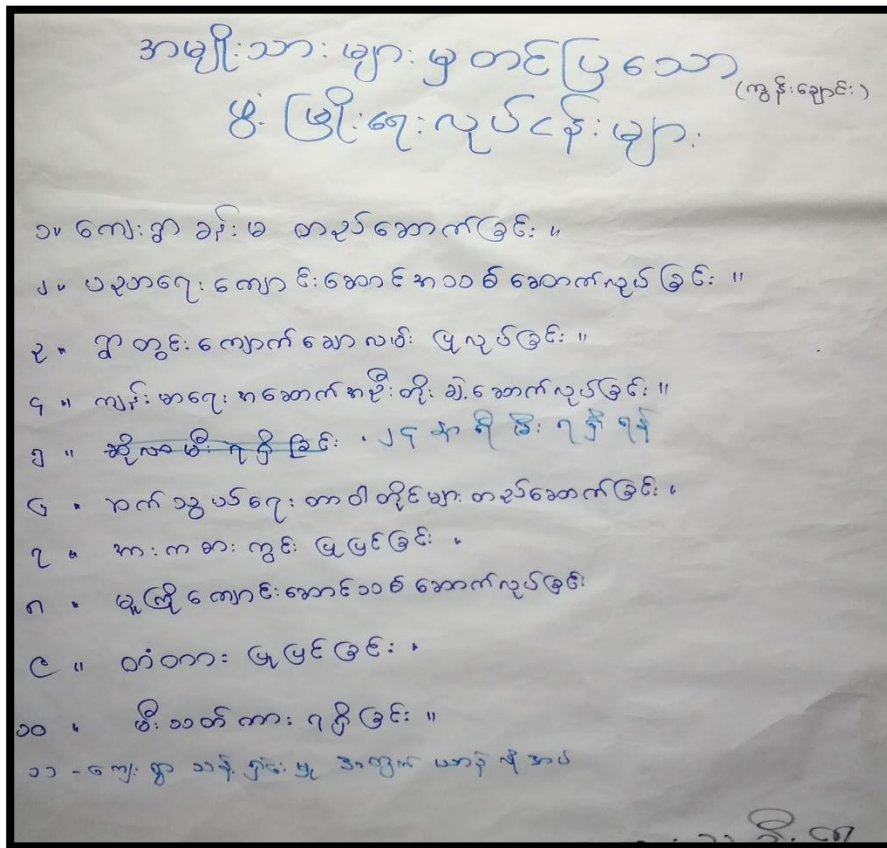 အမျိုးသားများမှတင်ပြသော
(ကျွန်းချောင်း)
ဖွံ့ဖြိုးရေးလုပ်ငန်းများ
၁။ ကျေးရွာခန်းမ တည်ဆောက်ခြင်း။
၂။ ပညာရေးကျောင်းဆောင်အသစ်ဆောက်လုပ်ခြင်း။
၃။ ရွာတွင်းကျောက်ချောလမ်း ပြုလုပ်ခြင်း။
၄။ ကျန်းမာရေးအဆောက်အဦးတိုးချဲ့ဆောက်လုပ်ခြင်း။
၅။ ဆိုလာမီးရရှိခြင်း ၂၄ နာရီ မီးရရှိရန်
၆။ ဆက်သွယ်ရေးတာဝါတိုင်များတည်ဆောက်ခြင်း။
၇။ အားကစားကွင်း ပြုပြင်ခြင်း။
၈။ မူကြိုကျောင်းဆောင်သစ်ဆောက်လုပ်ခြင်း
၉။ တံတား ပြုပြင်ခြင်း။
၁၀။ မီးသတ်ကား ရရှိခြင်း။
၁၁ - ကျေးရွာ သန့်ရှင်းမှု အတွက် ယာဉ် လိုအပ်